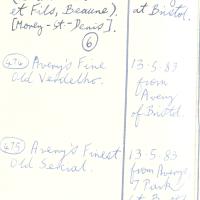 et Fils, Beaune). at Bristol.
[Morey-St-Denis].
(6)
(474) Avery's Fine 13.5.83
Old Verdelho. from
Avery
of Bristol.
(475) Avery's Finest 13.5.83
Old Sercial. from Avery's
7 Park